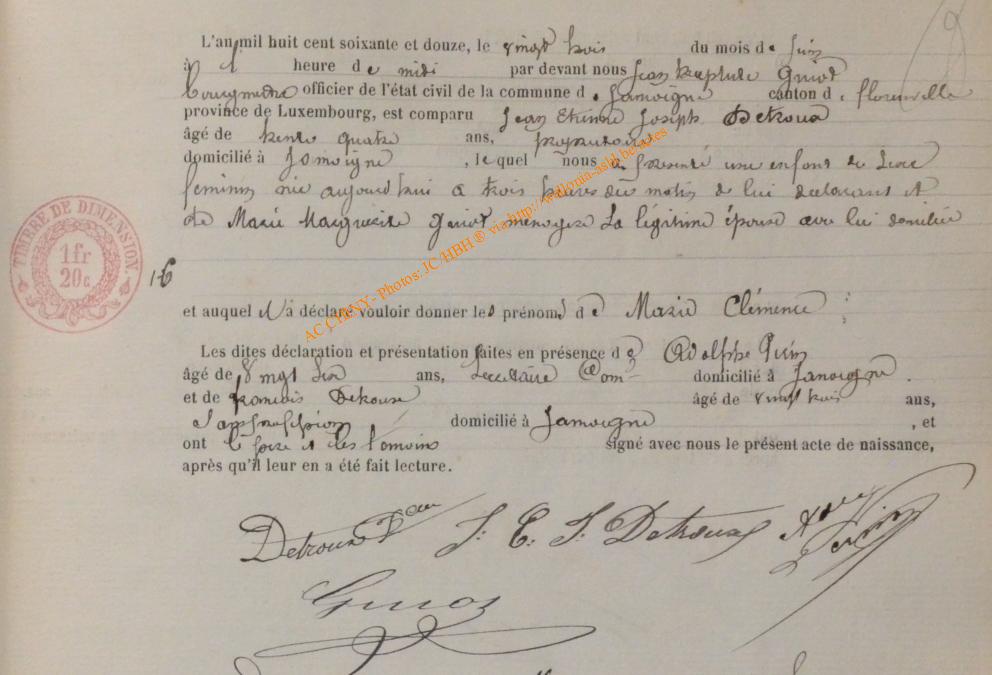 L'an mil huit cent soixante et douze, le vingt trois du mois de Juin
à 1 heure de midi par devant nous Jean Baptiste Guiot
Bourgmestre officier de l'état civil de la commune de Jamoigne canton de florenville
province de Luxembourg, est comparu Jean Etienne Joseph Detroux
âgé de trente quatre ans, proprietaire
domicilié à Jamoigne, lequel nous a présenté une enfant de sexe
feminin née aujourd'hui a trois heures du matin de lui déclarant et
de Marie Marguerite Guiot ménagère sa légitime épouse avec lui domiciliée
TIMBRE DE DIMENSION.
1fr
20c
16
et auquel il a déclaré vouloir donner les prénoms de Marie Clémence
Les dites déclaration et présentation faites en présence de Adolphe
âgé de vingt ans, Secrétaire Com domicilié à Jamoigne.
et de françois Detroux âgé de vingt trois ans,
sans profession domicilié à Jamoigne, et
ont le père et les témoins signé avec nous le présent acte de naissance,
après qu'il leur en a été fait lecture.
Detroux J. E. J. Detroux
Guiot
AC CHINY - Photos: JC/HBH ® via http://wallonia-asbl.be/actes